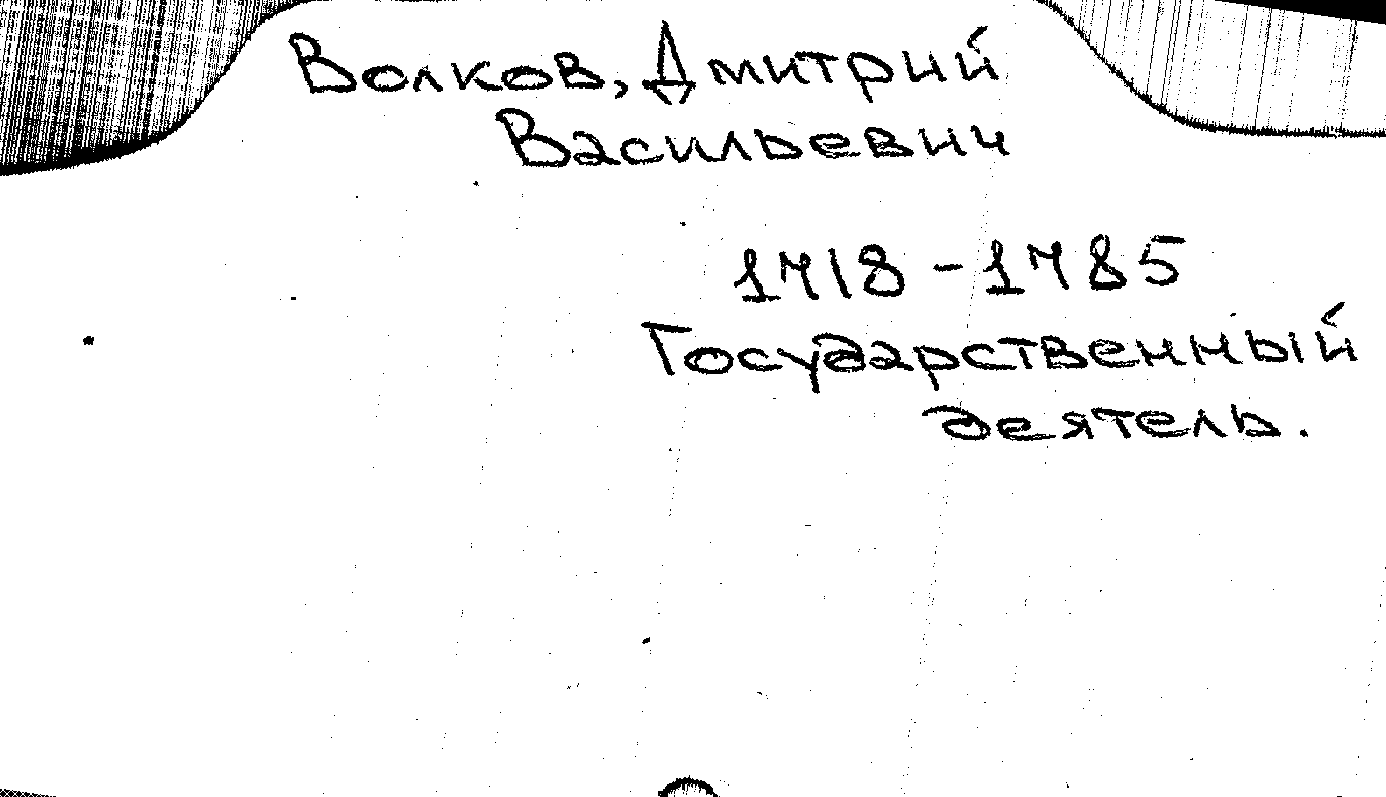 Волков, Дмитрий
Васильевич
1718-1785
Государственный
деятель.